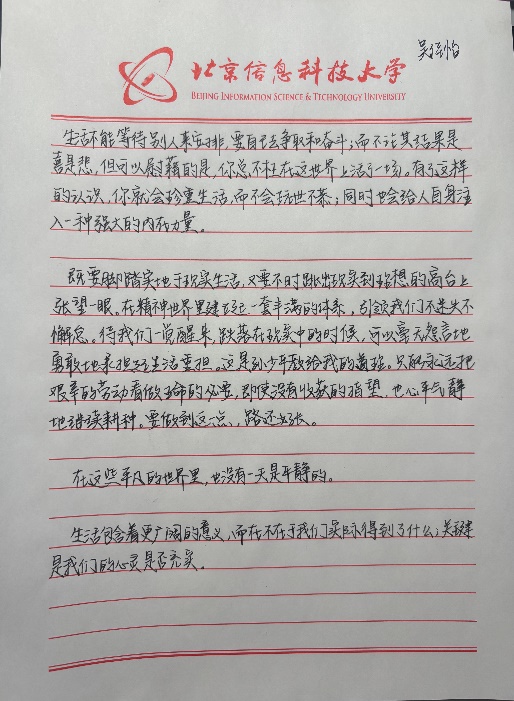 吴
北京信息科技大学
BEIJING INFORMATION SCIENCE & TECHNOLOGY UNIVERSITY
生活不能等待别人来安排,要自己去争取和奋斗;而不论其结果是
喜是悲,但可以慰藉的是,你总不枉在这世界上活了一场。有了这样
的认识,你就会珍重生活,而不会玩世不恭;同时也会给人自身注
入一种强大的内在力量。
既要脚踏实地于现实生活,又要不时跳出现实到理想的高台上
张望一眼。在精神世界里建立起一套丰满的体系,引领我们不迷失不
懈怠。待我们一觉醒来,跌落在现实中的时候,可以毫无怨言地
勇敢地承担起生活重担。这是孙少平教给我的道理。只能永远把
艰辛的劳动看做生命的必要,即使没有收获的指望,也心平气静
地继续耕种。要做到这点,路还好长。
在这些平凡的世界里,也没有一天是平静的。
生活包含着更广阔的意义,而在不在于我们实际得到了什么;关键
是我们的心灵是否充实。